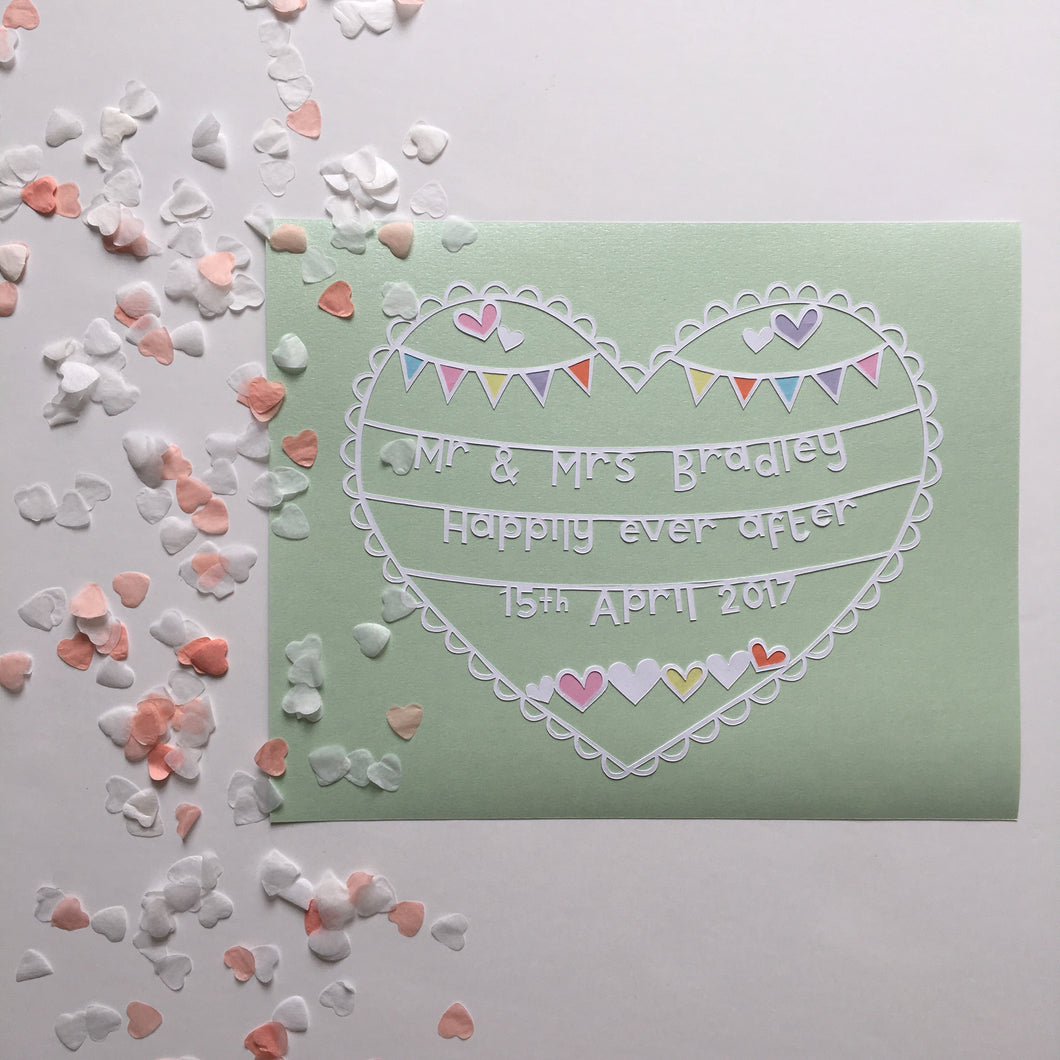 Mr & Mrs Bradley
Happily ever after
15th April 2017